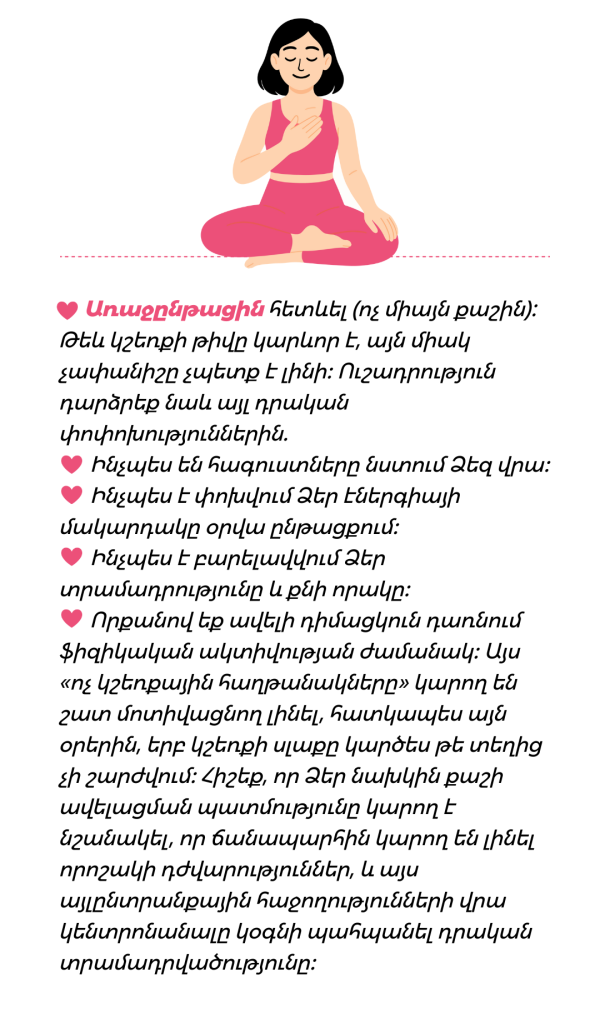 Առաջընթացին հետևել (ոչ միայն քաշին):
Թեև կշեռքի թիվը կարևոր է, այն միակ
չափանիշը չպետք է լինի: Ուշադրություն
դարձրեք նաև այլ դրական
փոփոխություններին.
Ինչպես են հագուստները նստում Ձեզ վրա:
Ինչպես է փոխվում Ձեր էներգիայի
մակարդակը օրվա ընթացքում:
Ինչպես է բարելավվում Ձեր
տրամադրությունը և քնի որակը:
Որքանով եք ավելի դիմացկուն դառնում
ֆիզիկական ակտիվության ժամանակ: Այս
«ոչ կշեռքային հաղթանակները» կարող են
շատ մոտիվացնող լինել, հատկապես այն
օրերին, երբ կշեռքի սլաքը կարծես թե տեղից
չի շարժվում: Հիշեք, որ Ձեր նախկին քաշի
ավելացման պատմությունը կարող է
նշանակել, որ ճանապարհին կարող են լինել
որոշակի դժվարություններ, և այս
այլընտրանքային հաջողությունների վրա
կենտրոնանալը կօգնի պահպանել դրական
տրամադրվածությունը: